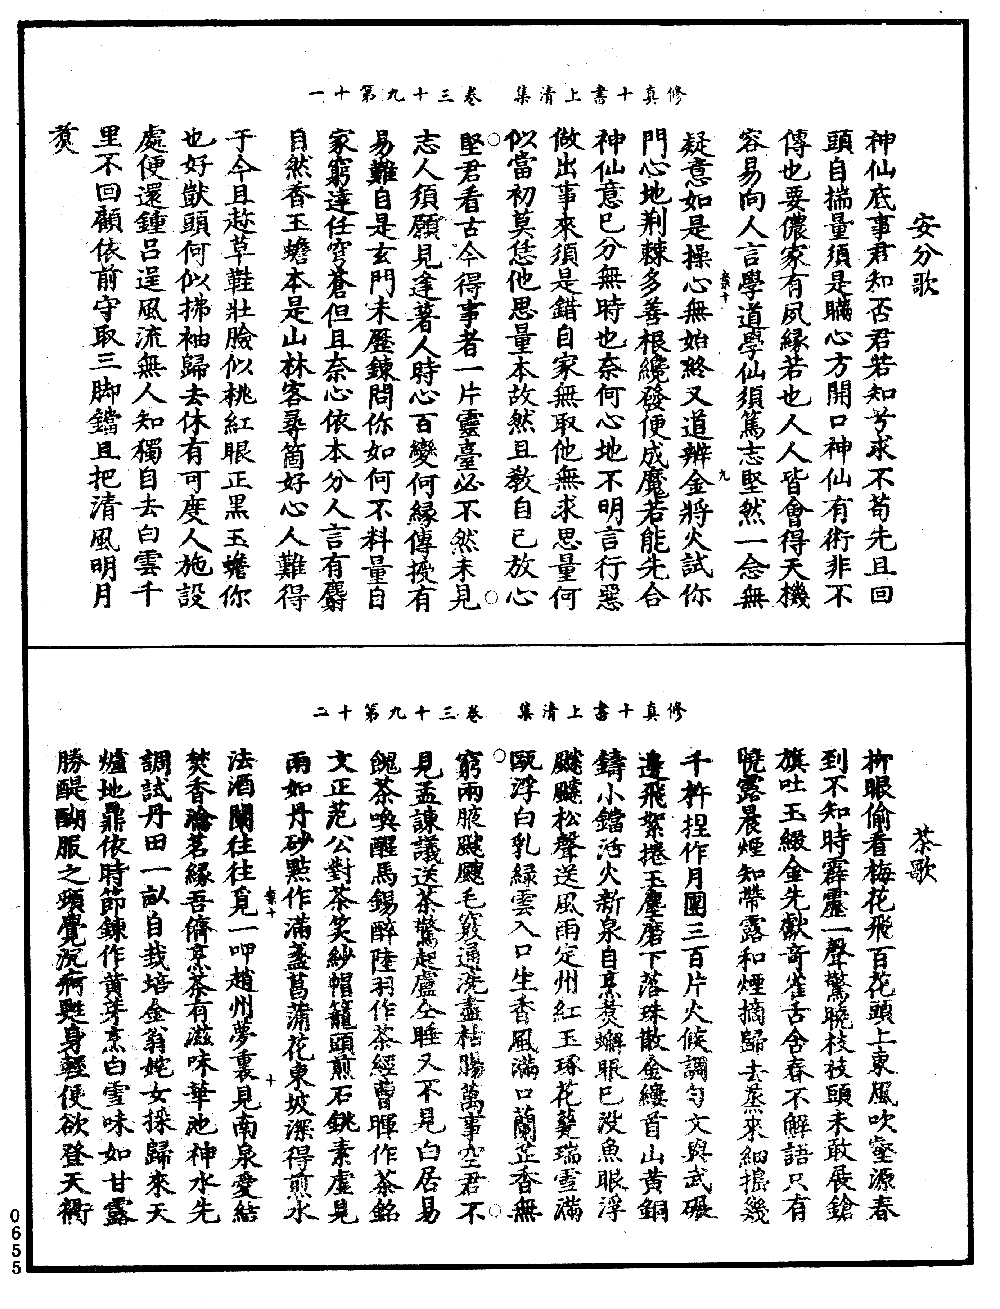 修真十書上清集　卷三十九第十一
安分歌
神仙底事君知否君若知兮求不苟先且回
頭自揣量須是瞞心方開口神仙有術非不
傳也要儂家有夙緣若也人人皆會得天機
容易向人言學道學仙須篤志堅然一念無
疑意如是操心無始終又道辨金將火試你
門心地荆棘多善根纔發便成魔若能先合
神仙意已分無時也奈何心地不明言行惡
做出事來須是錯自家無取他無求思量何
似當初莫恁他思量本故然且教自己放心
堅君看古今得事者一片靈臺必不然未見
志人須願見逢著人時心百變何緣傳授有
易難自是玄門未歷鍊問你如何不料量自
家窮達任穹蒼但且奈心依本分人言有麝
自然香玉蟾本是山林客尋箇好心人難得
于今且趂草鞋壯臉似桃紅眼正黑玉蟾你
也好獃頭何似拂袖歸去休有可度人施設
處便還鍾呂逞風流無人知獨自去白雲千
里不回顧依前守取三脚鐺且把清風明月
煑
修真十書上清集　卷三十九第十二
茶歌
柳眼偷看梅花飛百花頭上東風吹壑源春
到不知時霹靂一聲驚曉枝枝頭未敢展鎗
旗吐玉綴金先獻奇雀舌含春不解語只有
曉露晨煙知帶露和煙摘歸去蒸來細搗幾
千杵捏作月團三百片火候調勻文與武碾
邊飛絮捲玉塵磨下落珠散金縷首山黃銅
鑄小鐺活火新泉自烹煑蠏眼已沒魚眼浮
颼颼松聲送風雨定州紅玉琢花甆瑞雪滿
甌浮白乳綠雲入口生香風滿口蘭芷香無
窮兩腋颼颼毛竅通洗盡枯腸萬事空君不
見孟諫議送茶驚起盧仝睡又不見白居易
餽茶喚醒禹錫醉陸羽作茶經曹暉作茶銘
文正范公對茶笑紗帽籠頭煎石銚素虛見
雨如丹砂點作滿盞菖蒲花東坡深得煎水
法酒闌往往覓一呷趙州夢裏見南泉愛結
焚香瀹茗緣吾儕烹茶有滋味華池神水先
調試丹田一畝自栽培金翁姹女採歸來天
爐地鼎依時節鍊作黃芽烹白雪味如甘露
勝醍醐服之頓覺沉痾甦身輕便欲登天衢
0655